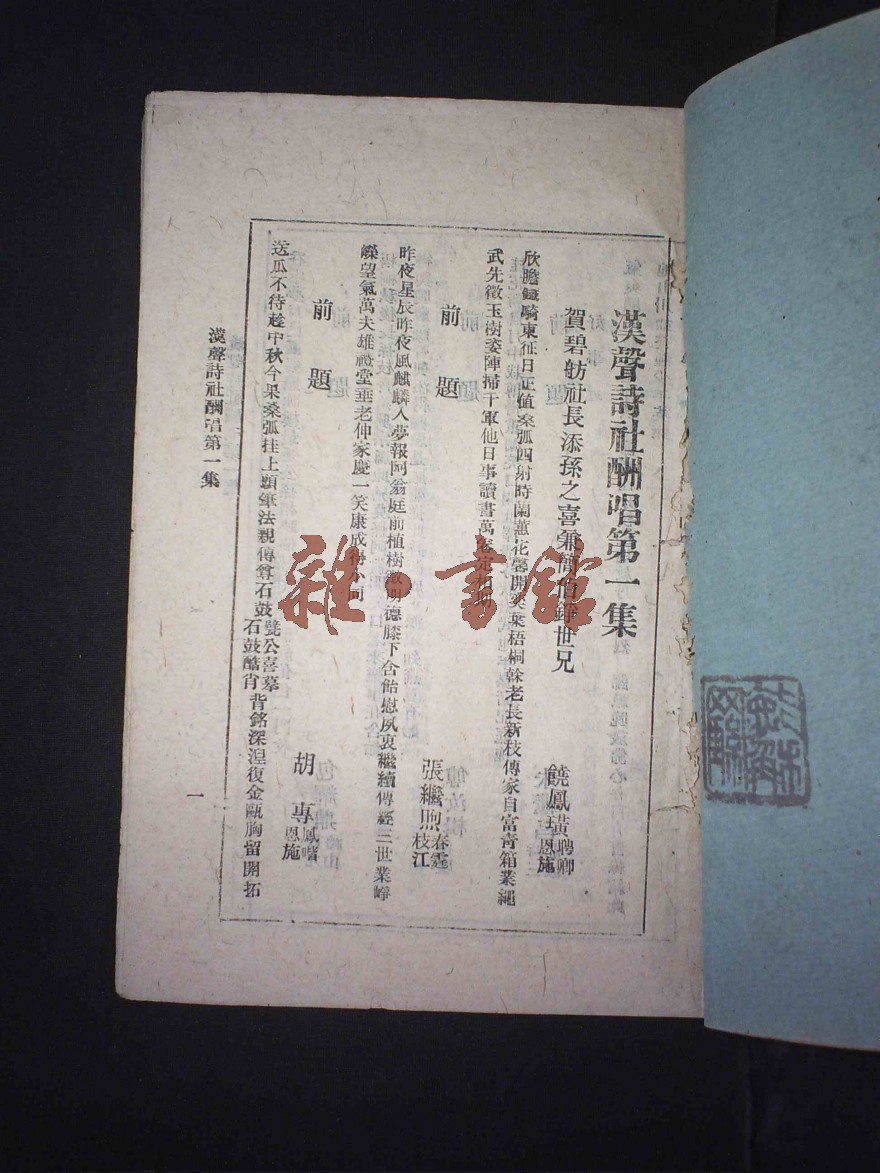 漢聲詩社酬唱第一集
賀碧舫社長添孫之喜兼簡伯錚世兄
饒鳳璜聘卿恩施
欣瞻鐵騎東征日正值桑弧四射時蘭蕙花馨開奕葉梧桐榦老長新枝傳家自富青箱業繩
武先徵玉樹姿陣掃千軍他日事讀書萬卷定相期
前題
張繼煦春霆枝江
昨夜星辰昨夜風麒麟入夢報阿翁庭前植樹徵明德膝下含飴慰夙衷繼續傳經三世業崢
嶸望氣萬夫雄禮堂垂老伸家慶一笑康成得小同
前題
胡專鳳喈恩施
送瓜不待趁中秋今果桑弧挂上頭筆法親傳尊石鼓甓公喜摹石鼓酷肖背銘深湼復金甌胸留開拓
漢聲詩社酬唱第一集
一
雜·書館